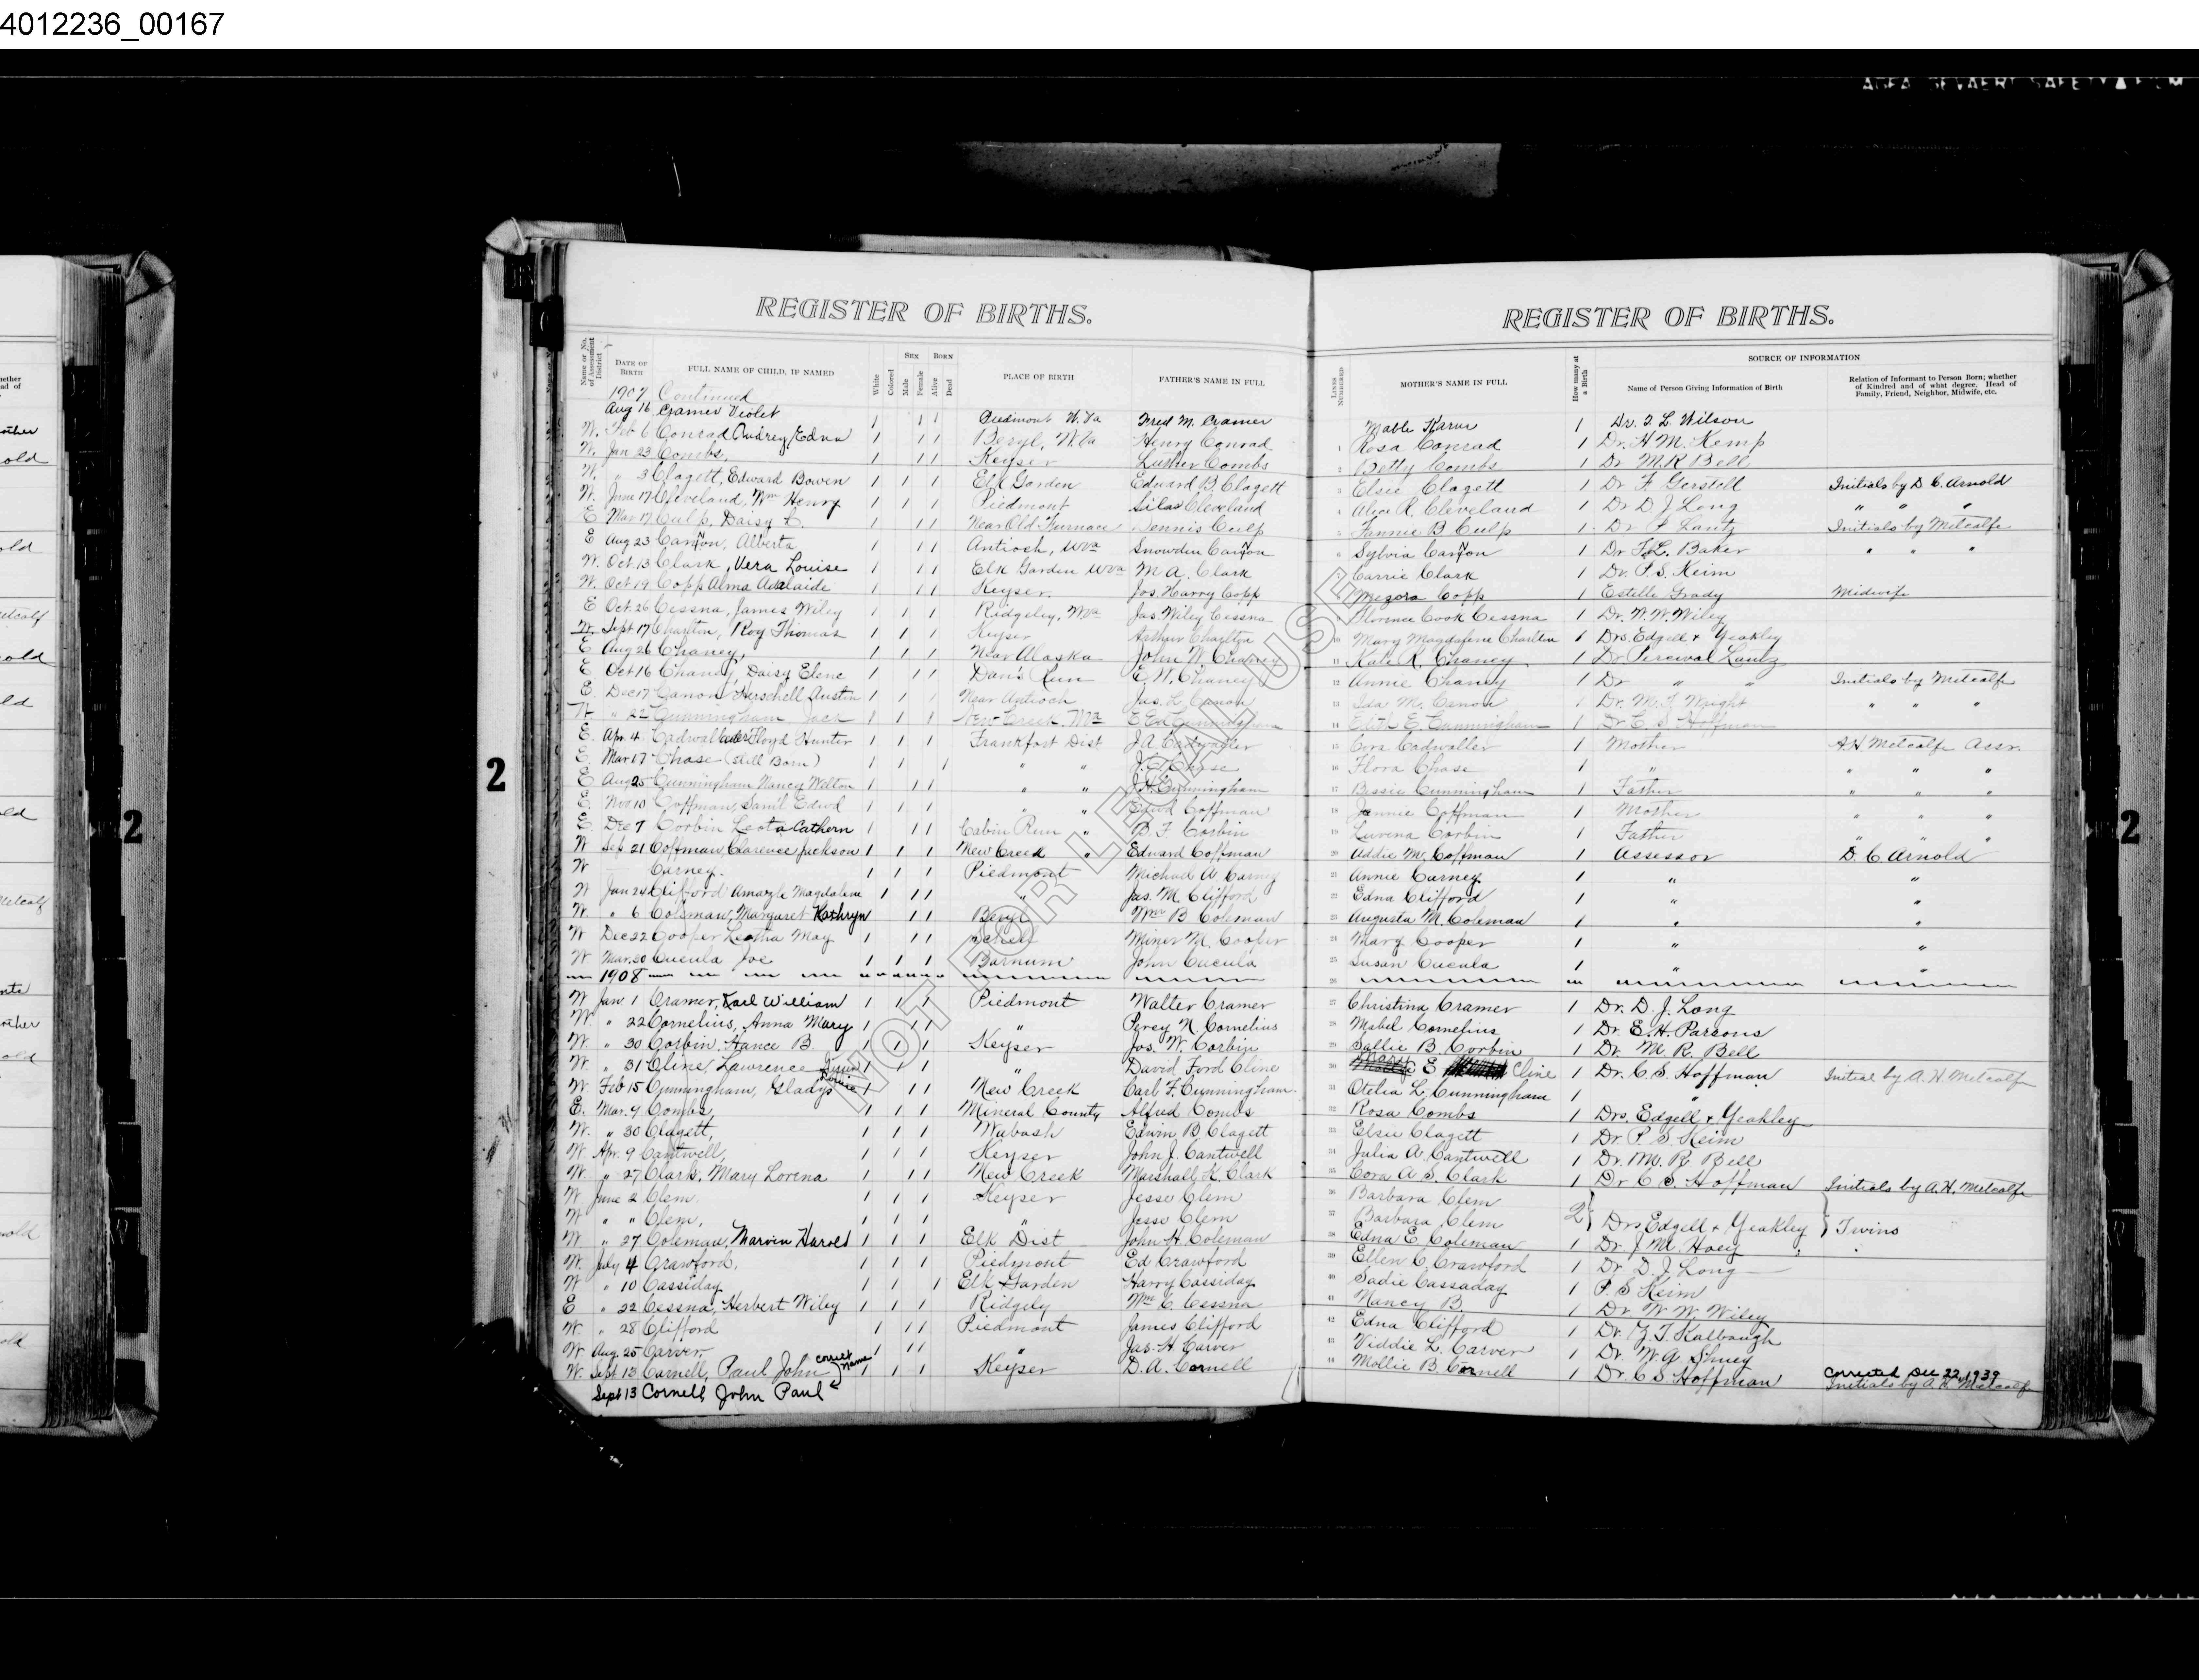 4012236_00167
AGFA GEVAERT SAFETY FILM
REGISTER OF BIRTHS.
REGISTER OF BIRTHS.
Name or No. of Assessment District
DATE OF BIRTH
FULL NAME OF CHILD, IF NAMED
White
Colored
SEX
Male
Female
BORN
Alive
Dead
PLACE OF BIRTH
FATHER'S NAME IN FULL
LINES NUMBERED
MOTHER'S NAME IN FULL
How many at a Birth
SOURCE OF INFORMATION
Name of Person Giving Information of Birth
Relation of Informant to Person Born; whether of Kindred and of what degree. Head of Family, Friend, Neighbor, Midwife, etc.
1907 Continued
Aug 16 Cramer Violet 1 1 1 Piedmont W. Va Fred M. Cramer Mable 1 Dr. L. Wilson
W. Feb 6 Conrad Audrey Edna 1 1 1 Beryl, W. Va Henry Conrad 1 Rosa Conrad 1 Dr. H M. Kemp
W. Jan 23 Combs, 1 1 1 Keyser Luther Combs 2 Betty Combs 1 Dr M. R Bell
W. " 3 Clagett, Edward Bowen 1 1 1 Elk Garden Edward B. Clagett 3 Elsie Clagett 1 Dr F. Gerstell Initials by D. C. Arnold
W. June 17 Cleveland, Wm Henry 1 1 1 Piedmont Silas Cleveland 4 Alice R. Cleveland 1 Dr D J Long " " "
E Mar 17 Culp, Daisy 1 1 1 Near Old Furnace Dennis Culp 5 Fannie B Culp 1 Dr P Lantz Initials by Metcalfe
E Aug 23 Canon, Alberta 1 1 1 Antioch, W Va Snowden Canon 6 Sylvia Canon 1 Dr L. Baker " " "
W. Oct. 13 Clark, Vera Louise 1 1 1 Elk Garden W Va M A. Clark 7 Carrie Clark 1 Dr. P. S. Keim
W. Oct 19 Copp Alma Adalaide 1 1 1 Keyser. Jos. Harry Copp 8 Megora Copp 1 Estelle Grady Midwife
E Oct. 26 Cessna, James Wiley 1 1 1 Ridgeley, W Va Jas. Wiley Cessna 9 Florence Cook Cessna 1 Dr. W. W. Wiley
W. Sept 17 Charlton, Roy Thomas 1 1 1 Keyser Arthur Charlton 10 Mary Magdalene Charlton 1 Drs. Edgell & Yeakley
E Aug 26 Chaney, 1 1 1 Near Alaska John W. Chaney 11 Kate K. Chaney 1 Dr. Percival Lantz
E Oct 16 Chaney, Daisy Elene 1 1 1 Dan's Run E. W. Chaney 12 Annie Chaney 1 Dr " " Initials by Metcalfe
E. Dec 17 Canon Herschell Austin 1 1 1 Near Antioch Jas. L. Canon 13 Ida M. Canon 1 Dr. M. F. Wright " " "
W " 22 Cunningham Jack 1 1 1 New Creek, W Va E Ed Cunningham 14 Edith E. Cunningham 1 Dr C. S. Hoffman
E. Apr. 4 Cadwallader Floyd Hunter 1 1 1 Frankfort Dist J A Cadwaller 15 Cora Cadwaller 1 Mother A H Metcalfe Assr.
E. Mar 17 Chase (Still Born) 1 1 1 " " Chase 16 Flora Chase 1 " " " "
E Aug 25 Cunningham Nancy Welton 1 1 1 " " Cunningham 17 Bessie Cunningham 1 Father " " "
E. Nov 10 Coffman, Saml Edwd 1 1 1 " " Coffman 18 Jennie Coffman 1 Mother " " "
E. Dec 7 Corbin Leota Cathern 1 1 1 Cabin Run " B. F Corbin 19 Luvena Corbin 1 Father " " "
W Sep 21 Coffman, Clarence Jackson 1 1 1 New Creek " Edward Coffman 20 Addie M. Coffman 1 Assessor D. C Arnold
W Carney. 1 1 1 Piedmont Michael A Carney 21 Annie Carney 1 " "
W Jan 24 Clifford Amazyle Magdalene 1 1 1 " Jas. M Clifford 22 Edna Clifford 1 " "
W. " 6 Coleman, Margaret Kathryn 1 1 Beryl Wm B Coleman 23 Augusta M. Coleman 1 " "
W Dec 22 Cooper Leotha May 1 1 1 Schell Miner M. Cooper 24 Mary Cooper 1 " "
W Mar. 30 Cucula Joe 1 1 1 Barnum John Cucula 25 Susan Cucula 1 " "
1908 26
W Jan. 1 Cramer, Karl William 1 1 1 Piedmont Walter Cramer 27 Christina Cramer 1 Dr. D. J. Long
W. " 22 Cornelius, Anna Mary 1 1 1 " Percy N. Cornelius 28 Mabel Cornelius 1 Dr. E. H. Parsons
W. " 30 Corbin, Hance B. 1 1 1 Keyser Jos. W. Corbin 29 Sallie B. Corbin 1 Dr. M. R. Bell
W. " 31 Cline, Lawrence 1 1 1 " David Ford Cline 30 Mary E Cline 1 Dr. C. S. Hoffman Initial by A. H. Metcalfe
W Feb 15 Cunningham, Gladys 1 1 1 New Creek Carl F. Cunningham 31 Otelia L. Cunningham 1 "
E. Mar. 9 Combs, 1 1 1 Mineral County Alfred Combs 32 Rosa Combs 1 Drs. Edgell & Yeakley
W. " 30 Clagett, 1 1 1 Wabash Edwin B Clagett 33 Elsie Clagett 1 Dr P. S Keim
W Apr. 9 Cantwell, 1 1 1 Keyser John J. Cantwell 34 Julia A. Cantwell 1 Dr. M. R. Bell
W. " 27 Clark, Mary Lorena 1 1 1 New Creek Marshall K. Clark 35 Cora A S. Clark 1 Dr C S. Hoffman Initials by A. H. Metcalfe
W June 2 Clem. 1 1 1 Keyser Jesse Clem 36 Barbara Clem
W " " Clem, 1 1 1 " Jesse Clem 37 Barbara Clem 2 Drs Edgell & Yeakley Twins
W " 27 Coleman, Marvin Harold 1 1 1 Elk Dist John H. Coleman 38 Edna E. Coleman 1 Dr. J M. Hoey
W. July 4 Crawford, 1 1 1 Piedmont Ed Crawford 39 Ellen C. Crawford 1 Dr D. J Long
W " 10 Cassiday 1 1 1 Elk Garden Harry Cassiday 40 Sadie Cassaday 1 P. S Keim
E " 22 Cessna, Herbert Wiley 1 1 1 Ridgely Wm C. Cessna 41 Nancy B 1 Dr W. W. Wiley
W. " 28 Clifford 1 1 1 Piedmont James Clifford 42 Edna Clifford 1 Dr. Z. T. Kalbaugh
W Aug. 25 Carver, 1 1 1 " Jas. H. Carver 43 Viddie L. Carver 1 Dr. W. A. Shuey
W. Sept. 13 Carnell, Paul John correct name 1 1 1 Keyser D. A. Cornell 44 Mollie B. Cornell 1 Dr. C S. Hoffman Corrected Dec 22, 1939
Initials by A. H. Metcalfe
Sept 13 Cornell, John Paul
NOT FOR LEGAL USE
2
2
2
2